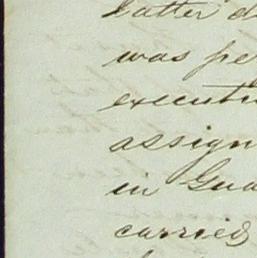 latter d
was pe
executi
assign
in Gua
carried